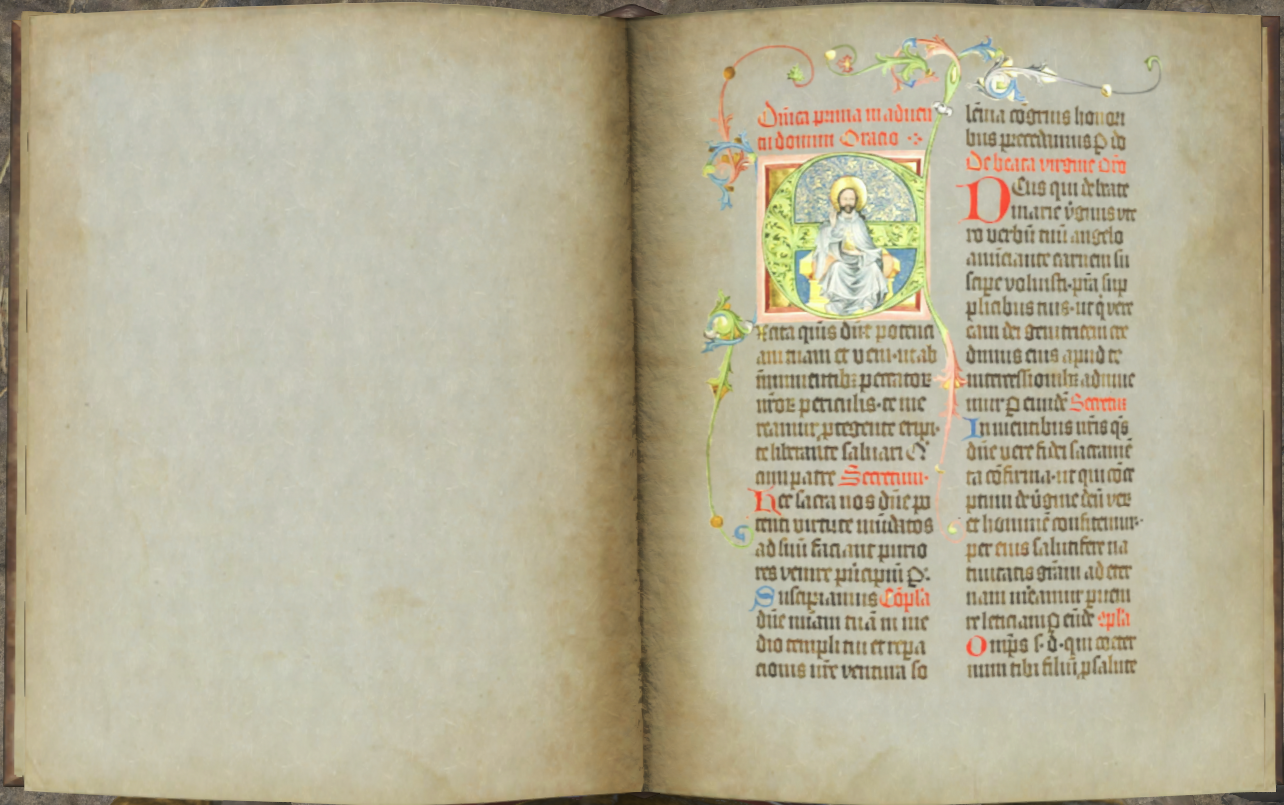 Dnica prima in aduen
tu domini Oracio
Excita quis dne potenci
am tuam et veni·ut ab
iminentibz peccatoꝝ
nroꝝ periculis·te me
reamur ꝓtegente eripi·
te liberante saluari Q
cum patre Secretum·
Hec sacra nos dne po
tenti virtute mudatos
ad suu faciant purio
res venire pncipiu P·
Suscipiamus Copla
dne miam tua in me
dio templi tui et repa
cionis nre ventura so
lemnia cogruis honori
bus precedamus P do
De beata virgine Oro
Deus qui de beate
marie vginis vte
ro verbu tuu angelo
anuciante carnem su
scipe voluisti·pta sup
plicibus tuis·ut q vere
eam dei genitricem cre
dimus eius apud te
intercessionibz adiuue
mur P eunde Secretu
In mentibus nris qs
dne vere fidei sacrame
ta cofirma·ut qui coce
ptum de vgine deu veꝝ
et homine confitemur·
per eius salutifere na
tiuitatis gram ad eter
nam meamur puen
re leticiam P eude cpla
Omps s·d·qui coeter
num tibi filiu ꝓ salute